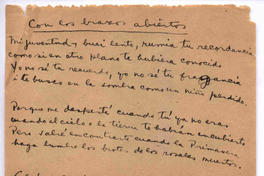 Con los brazos abiertos
Mi juventud y buci lente, rumia tu recordancia
como si en otro plano te hubiera conocido
Yo no sé tu recuerdo, yo no sé tu fragancia
i te busco en la sombra como un niño perdido.
Porque me desperté cuando tú ya no eras
cuando el cielo i la tierra te habían encubierto
Pero saldré a encontrarte cuando la Primavera
haga los brotes de los rosales muertos.